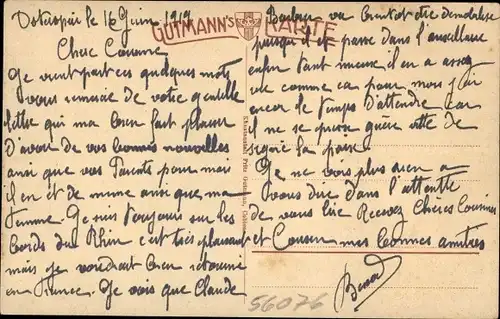 le 16 Juin 1919
GUTMANN's KARTE
Chère Cousine
Je vient par ces quelques mots
vous remercie de votre gentille
lettre qui ma bien fait plaisir
D'avoir de vos bonnes nouvelles
ainsi que vos Parents pour moi
il en et de même ainsi que ma
femme. Je suis toujours sur les
bords du Rhin c'est très plaisant
mais je voudrait bien
en France. Je vois que Claude
va bientot etre démobilisé
puisqu'il et passe dans l'auxiliaire
enfin tant mieux il en a assez
vue comme ca pour mois j'ai
encor le temps D'attendre car
il ne se presse guère vite de
la paix
Je ne vois plus rien a
vous dire dans l'attente
de vous lire Recevez Chères Cousines
et Cousin mes bonnes amitiés
56076